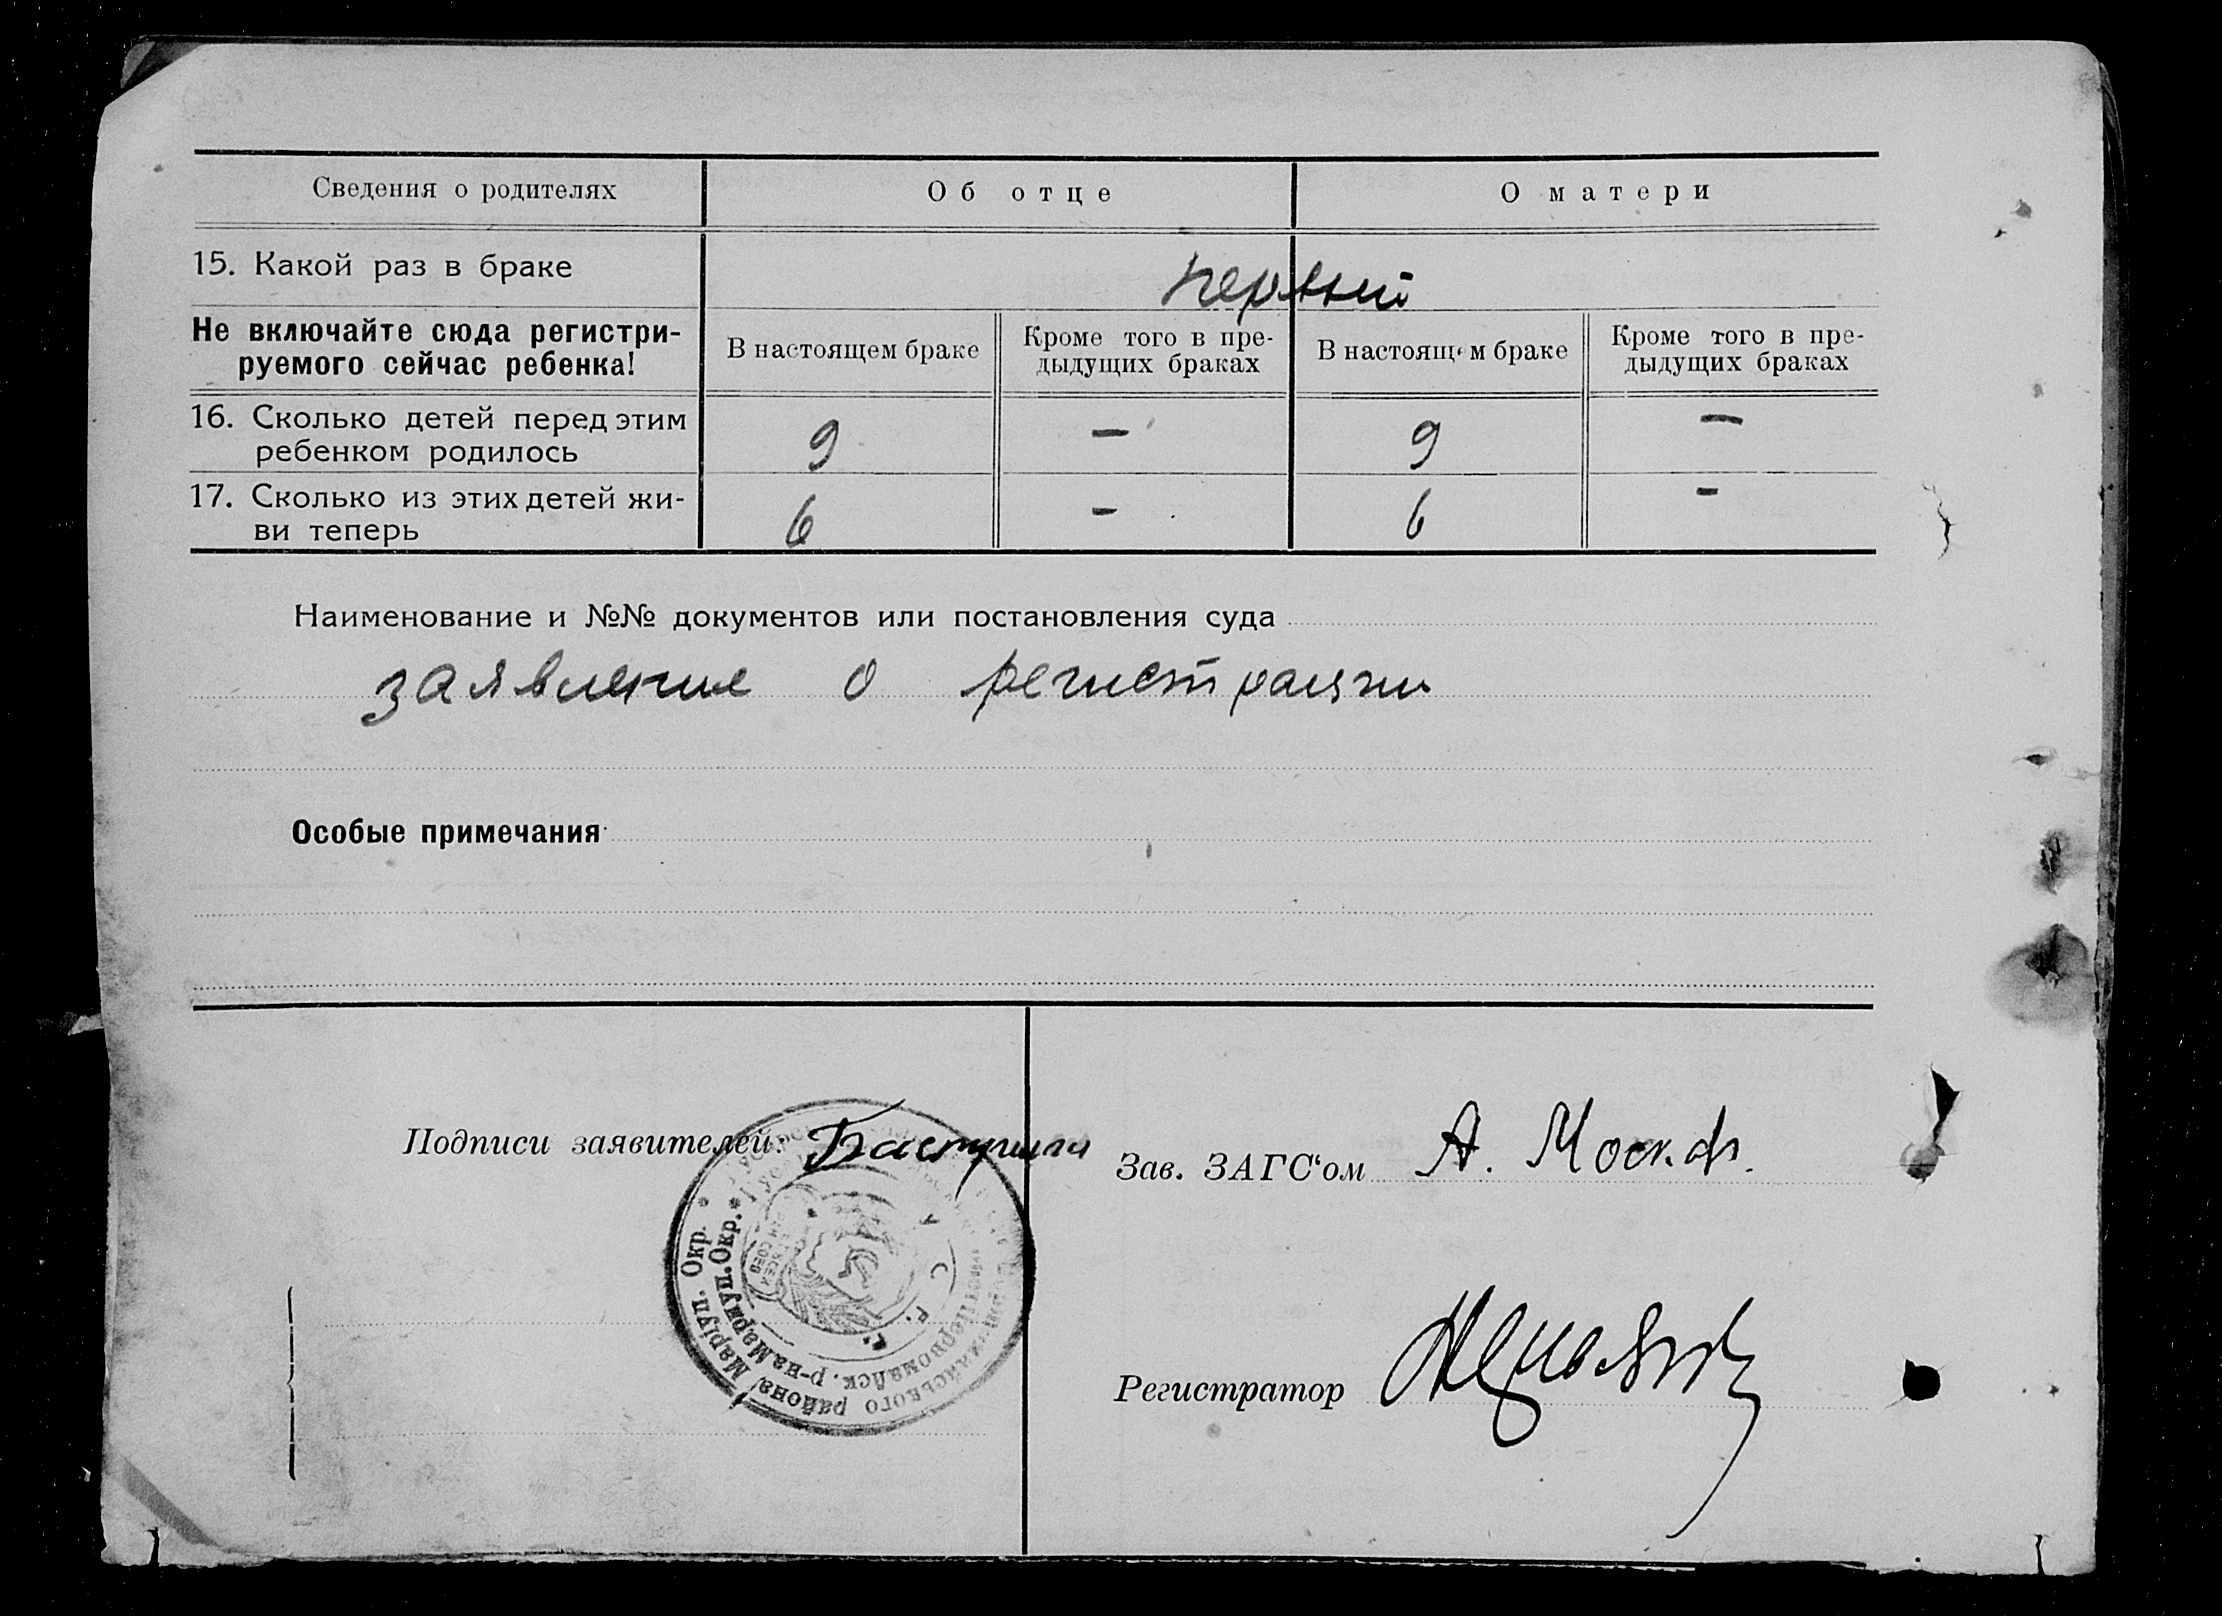 Сведения о родителях Об отце О матери
15. Какой раз в браке первый
Не включайте сюда регистри-
руемого сейчас ребенка!
В настоящем браке
Кроме того в пре-
дыдущих браках
В настоящем браке
Кроме того в пре-
дыдущих браках
16. Сколько детей перед этим
ребенком родилось 9 — 9 —
17. Сколько из этих детей жи-
ви теперь 6 - 6 -
Наименование и №№ документов или постановления суда
заявление о регистрации
Особые примечания
Подписи заявителей:
Зав. ЗАГС'ом А.
Регистратор
района, Маріуп. Окр. *
Первомайск. р-на Мариуп. Окр. *
У С Р. Р.